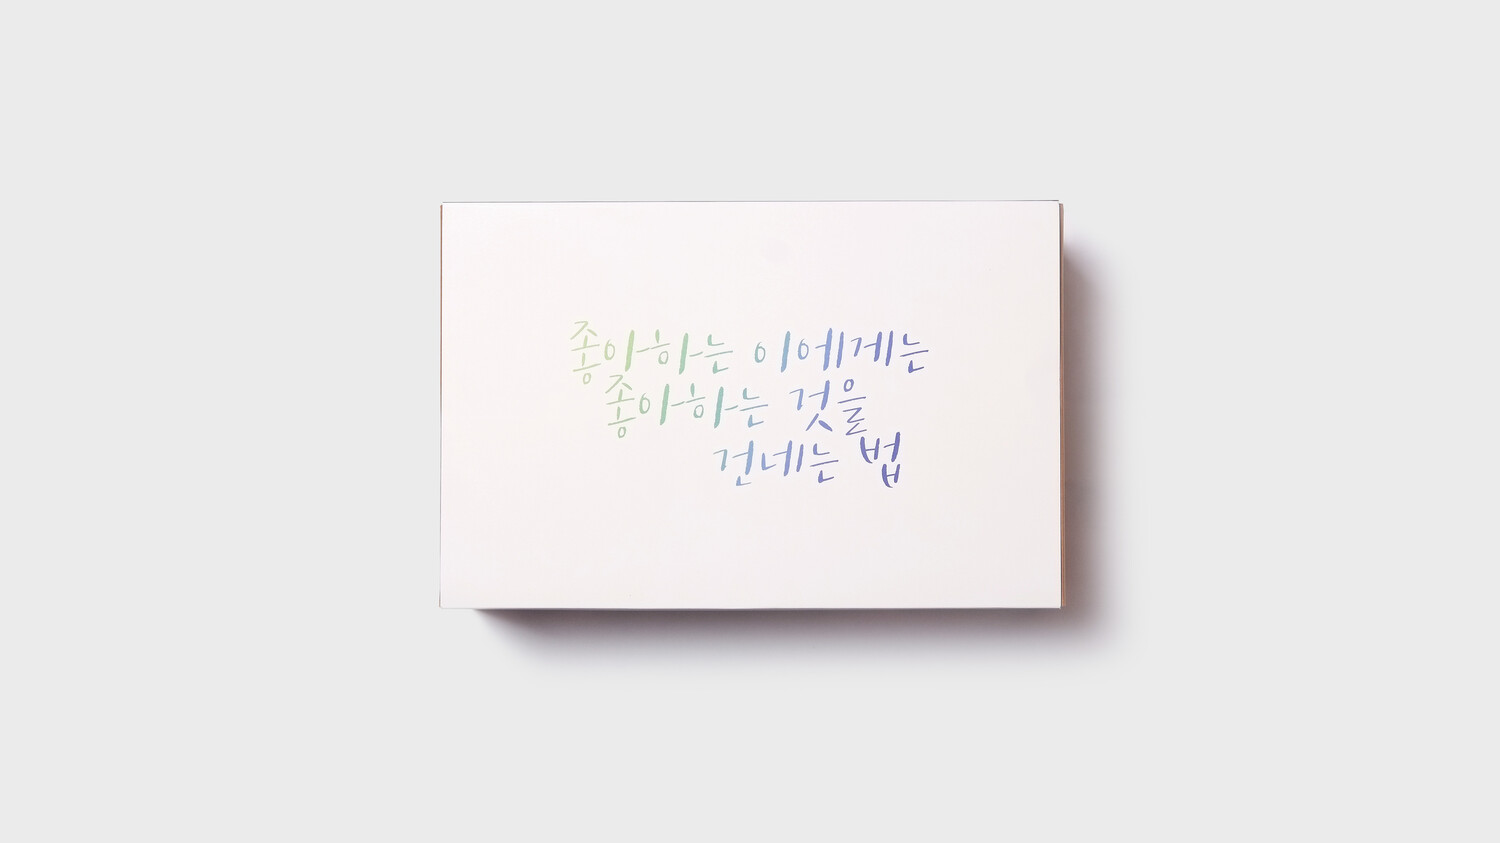 좋아하는 이에게는
좋아하는 것을
건네는 법